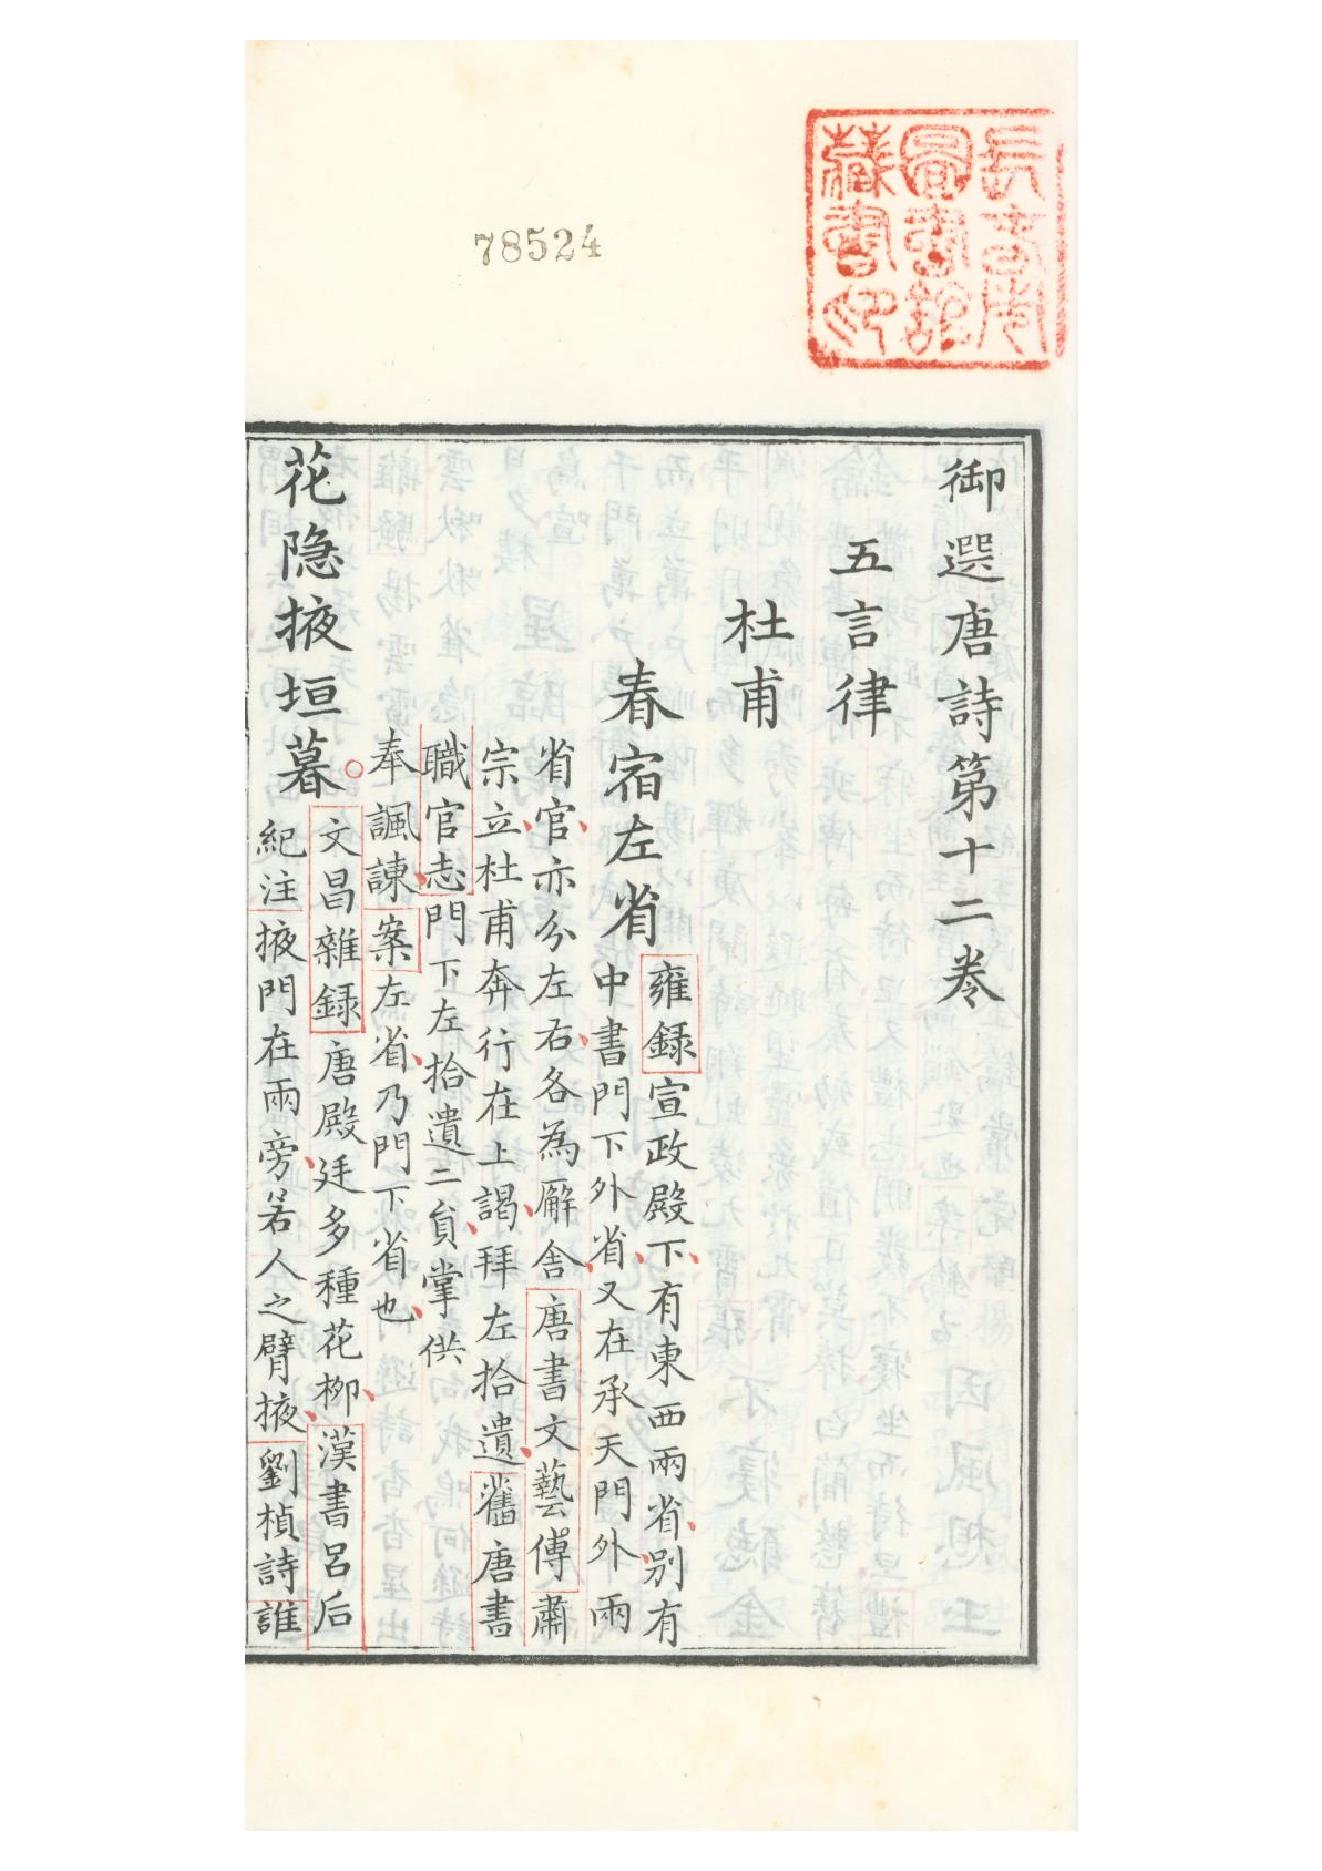 78524
長春市
圖書館
藏書印
御選唐詩第十二卷
五言律
杜甫
春宿左省
雍録宣政殿下有東西兩省别有
中書門下外省又在承天門外兩
省官亦分左右各為廨舍唐書文藝傳肅
宗立杜甫奔行在上謁拜左拾遺舊唐書
職官志門下左拾遺二貟掌供
奉諷諫案左省乃門下省也
花隐掖垣暮
文昌雜録唐殿廷多種花栁漢書呂后
紀注掖門在兩旁若人之臂掖劉楨詩誰